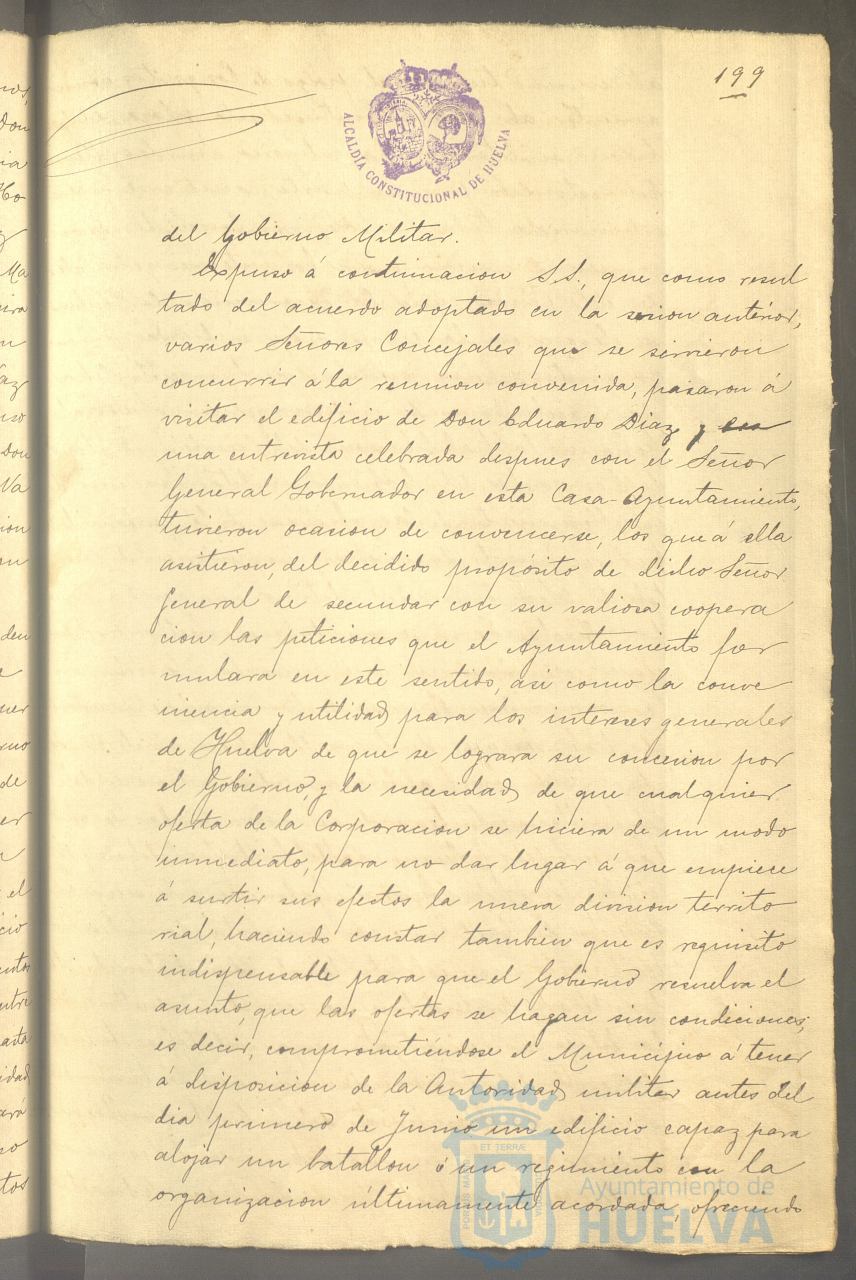 199
ALCALDÍA CONSTITUCIONAL DE HUELVA
del Gobierno Militar.
Expuso á continuacion S.S., que como resul
tado del acuerdo adoptado en la sesion anterior,
varios Señores Concejales que se sirvieron
concurrir á la reunion convenida, pasaron á
visitar el edificio de Don Eduardo Diaz y
una entrevista celebrada despues con el Señor
General Gobernador en esta Casa-Ayuntamiento,
tuvieron ocasion de convencerse, los que á ella
asistieron, del decidido propósito de dicho Señor
General de secundar con su valiosa coopera
cion las peticiones que el Ayuntamiento for
mulara en este sentido, asi como la conve
niencia y utilidad para los intereses generales
de Huelva de que se lograra su concesion por
el Gobierno, y la necesidad de que cualquier
oferta de la Corporacion se hiciera de un modo
inmediato, para no dar lugar á que empiece
á surtir sus efectos la nueva division territo
rial, haciendo constar tambien que es requisito
indispensable para que el Gobierno resuelva el
asunto, que las ofertas se hagan sin condiciones;
es decir, comprometiéndose el Municipio á tener
á disposicion de la Autoridad militar antes del
dia primero de Junio un edificio capaz para
alojar un batallon ó un regimiento con la
organizacion últimamente acordada, ofreciendo
PORTUS MARIS ET TERRÆ CUSTODIA
Ayuntamiento de
HUELVA